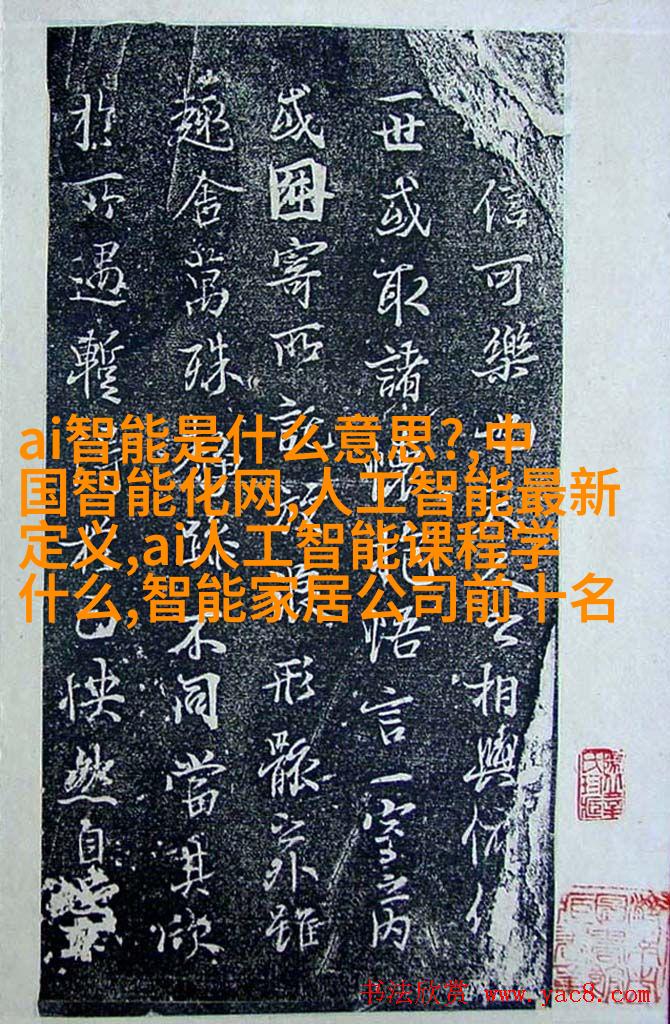 信可樂也夫人之相與俯仰
一世或取諸懷抱悟言一室之内
或因寄所託放浪形骸之外雖
趣舍萬殊靜躁不同當其欣
於所遇暫得於己怏然自
ai智能是什么意思?,中
国智能化网,人工智能最新
定义,ai人工智能课程学
什么,智能家居公司前十名
书法欣赏 www.yac8.com